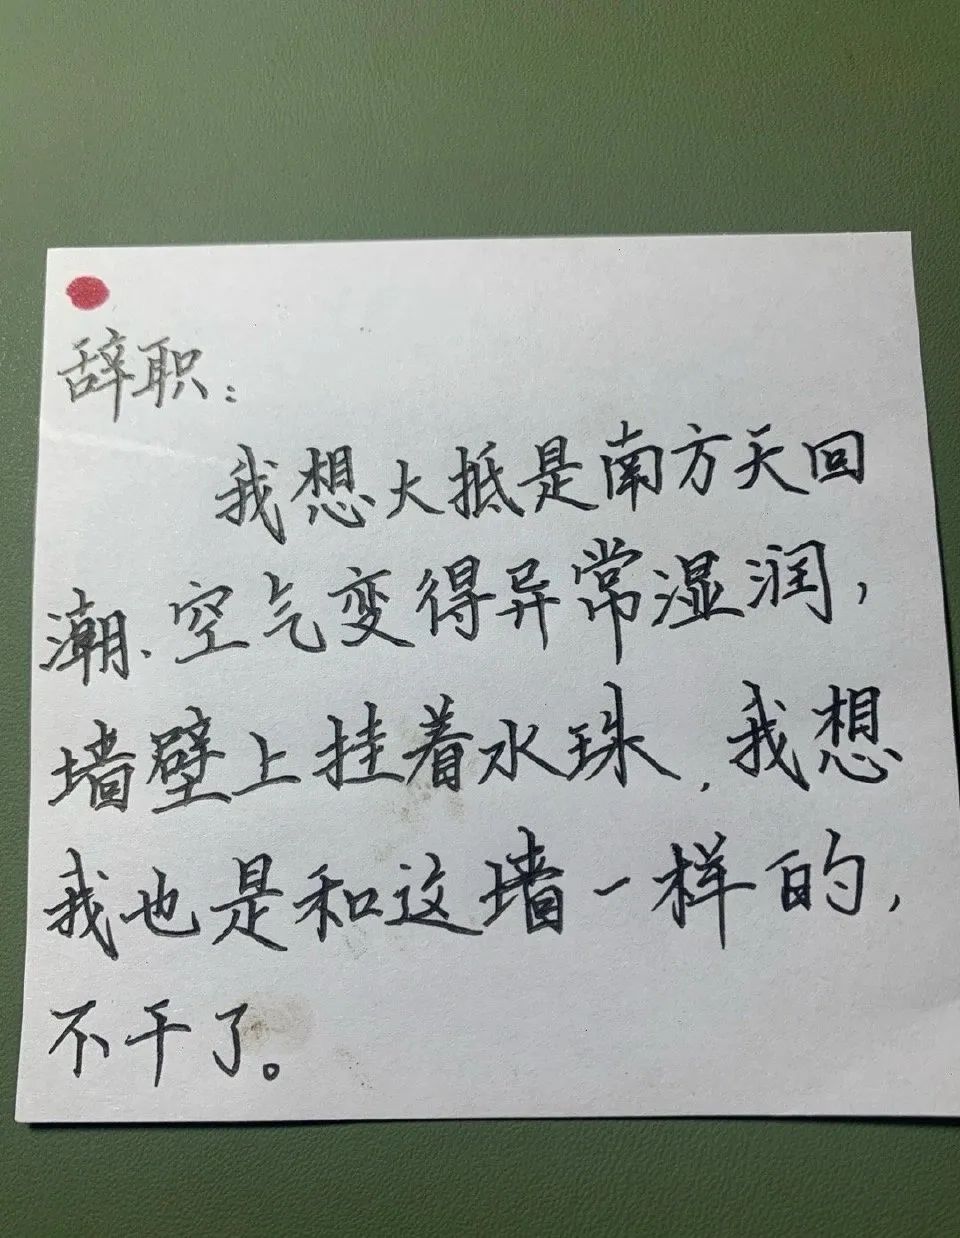 辞职：
我想大抵是南方天回
潮、空气变得异常湿润，
墙壁上挂着水珠，我想
我也是和这墙一样的，
不干了。